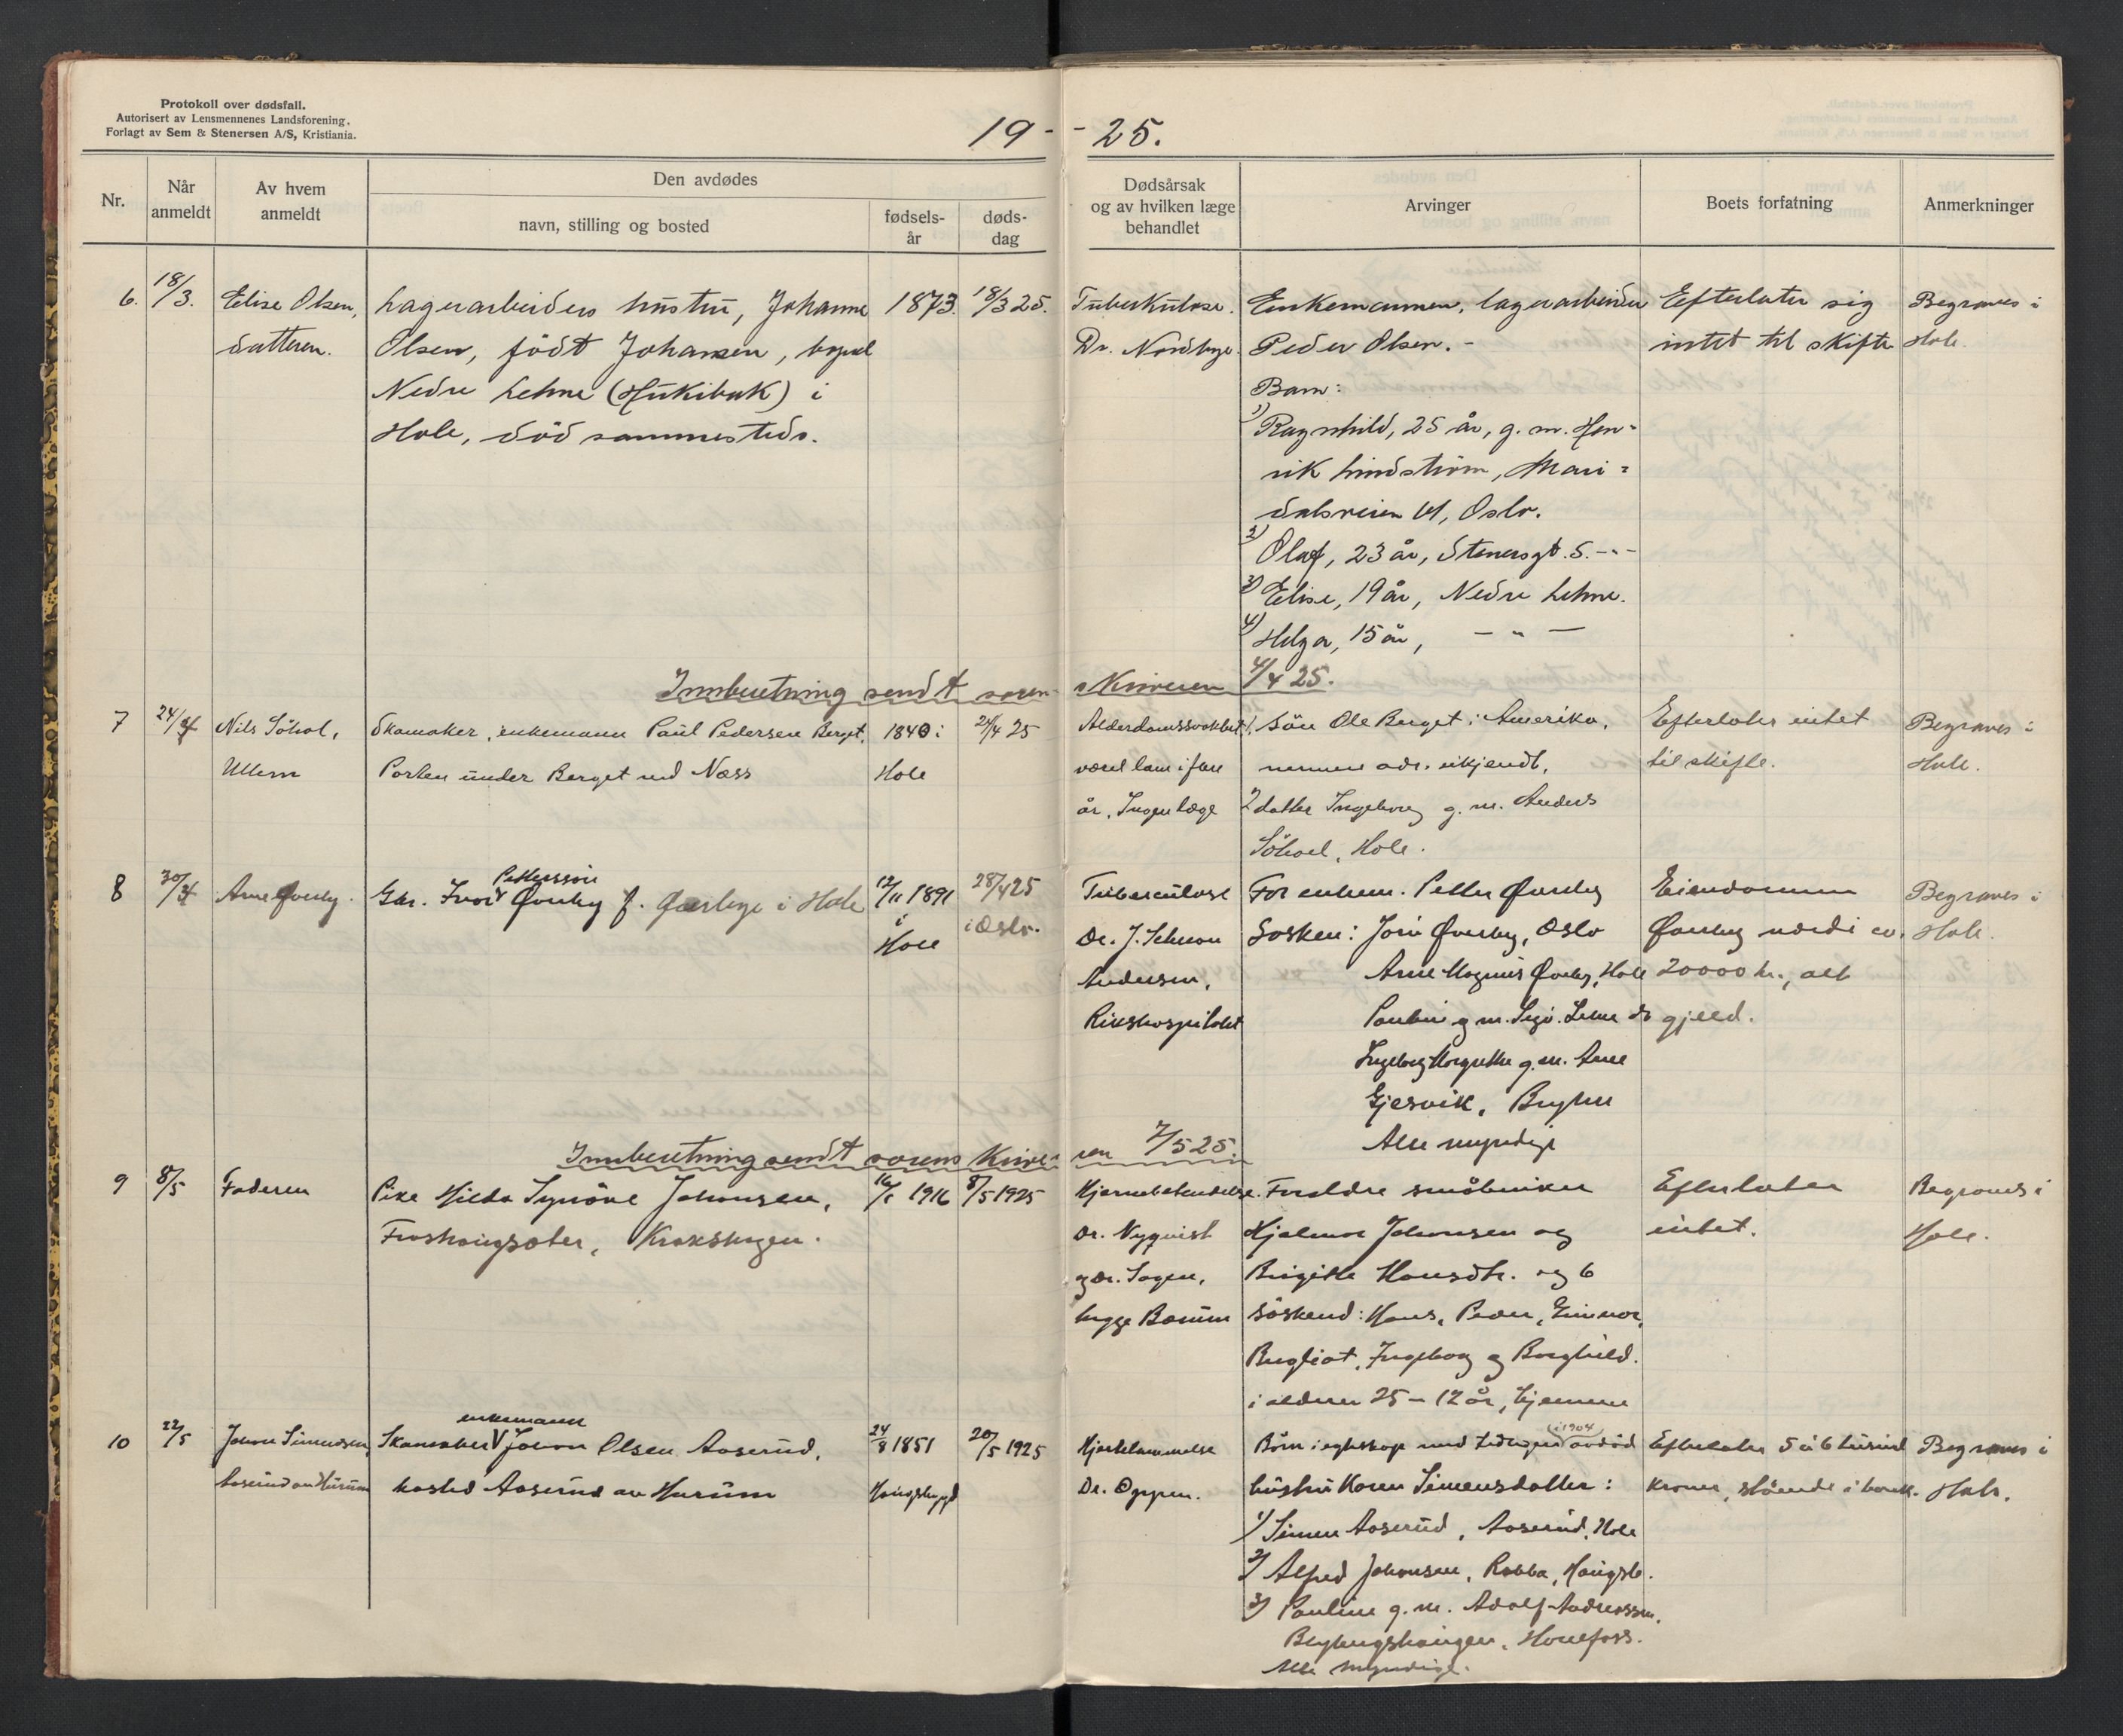 Protokoll over dødsfall.
Autorisert av Lensmennenes Landsforening.
Forlagt av Sem & Stenersen A/S, Kristiania.
19 - - 25.
Nr.
Når anmeldt
Av hvem anmeldt
Den avdødes
navn, stilling og bosted
fødsels-år
døds-dag
Dødsårsak og av hvilken læge behandlet
Arvinger
Boets forfatning
Anmerkninger
6. 18/3. Elise Olsen, Lagerarbeiders hustru, Johanne 1873. 18/3 25. Tuberkulose. Enkemannen, lagerarbeider Efterlater sig Begraves i
datteren. Olsen, født Johansen, Dr. Nordbye. Peder Olsen. - intet til skifte Hole.
Nedre Lehne (Hukibak) i Barn:
Hole, död sammesteds. 1) Ragnhild, 25 år, g. m. Hen-
rik Lindström, Mari=
dalsveien 61, Oslo.
2) Olaf, 23 år, Stenersgt. 5. -"-
3) Elise, 19 år, Nedre Lehne.
4) Helga, 15 år, - " -
Innberetning sendt soren-skriveren 4/4 25.
7 24/4 Nils Söhol, Skomaker, enkemann Paul Pedersen Berget, 1840 i 24/4 25 Alderdomssvakhet, 1. Sön Ole Berget i Amerika, Efterlater intet Begraves i
Ullern Porten under Berget ved Næss Hole været lam i flere nermere adr. ukjendt, til skifte. Hole.
år. Ingen læge 2 datter Ingeborg g. m. Anders
Söhoel, Hole.
Pettersson
8 30/4 Arne Øverby. Gbr. Ivar Øverby f. Øverbye i Hole 12/11 1891 28/4 25 Tuberculose For enkem. Petter Øverby Eiendommen Begraves i
i Hole i Oslo. Dr. J. Schron Sosken: Jörn Øverby, Oslo Øverby verdi ca. Hole.
Andersen, Arne Magnus Øverby, Hole 20000 kr., alt
Rikshospitalet g. m. Lehne do gjeld.
Ingeborg Margrethe g. m. Arne
Gjesvik,
Alle myndige
Innberetning sendt sorenskriveren 7/5 25.
9 8/5 Faderen Pike Hilda Synöve Johansen, 1916 8/5 1925 Hjernebetendelse. Foreldre småbruker Efterlater Begraves i
Krokskogen. Dr. Nyquist Hjalmar Johansen og intet. Hole.
og Dr. Birgitte Hansdtr. og 6
Bærum söskend: Hans, Peder, Gunnor,
Bergliot, Ingeborg og Borghild.
i alderen 25 - 12 år, hjemme
enkemann
10 22/5 Johan Simensen, Skomaker Johan Olsen Aaserud, 24/8 1851 20/5 1925 Hjertelammelse Børn i egteskap med tidligere (i 1904) avdöd Efterlater 5 à 6 tusind Begraves i
Aaserud av Hurum bosted Aaserud av Hurum Haugsbygd Dr. Oppen. hustru Karen Simensdatter: kroner, stående i bank. Hole.
1/ Simen Aaserud, Aaserud, Hole
2/ Alfred Johansen, Rabba, Haugsb.
3/ Pauline g. m. Adolf Andreassen,
Hønefoss.
Alle myndige.